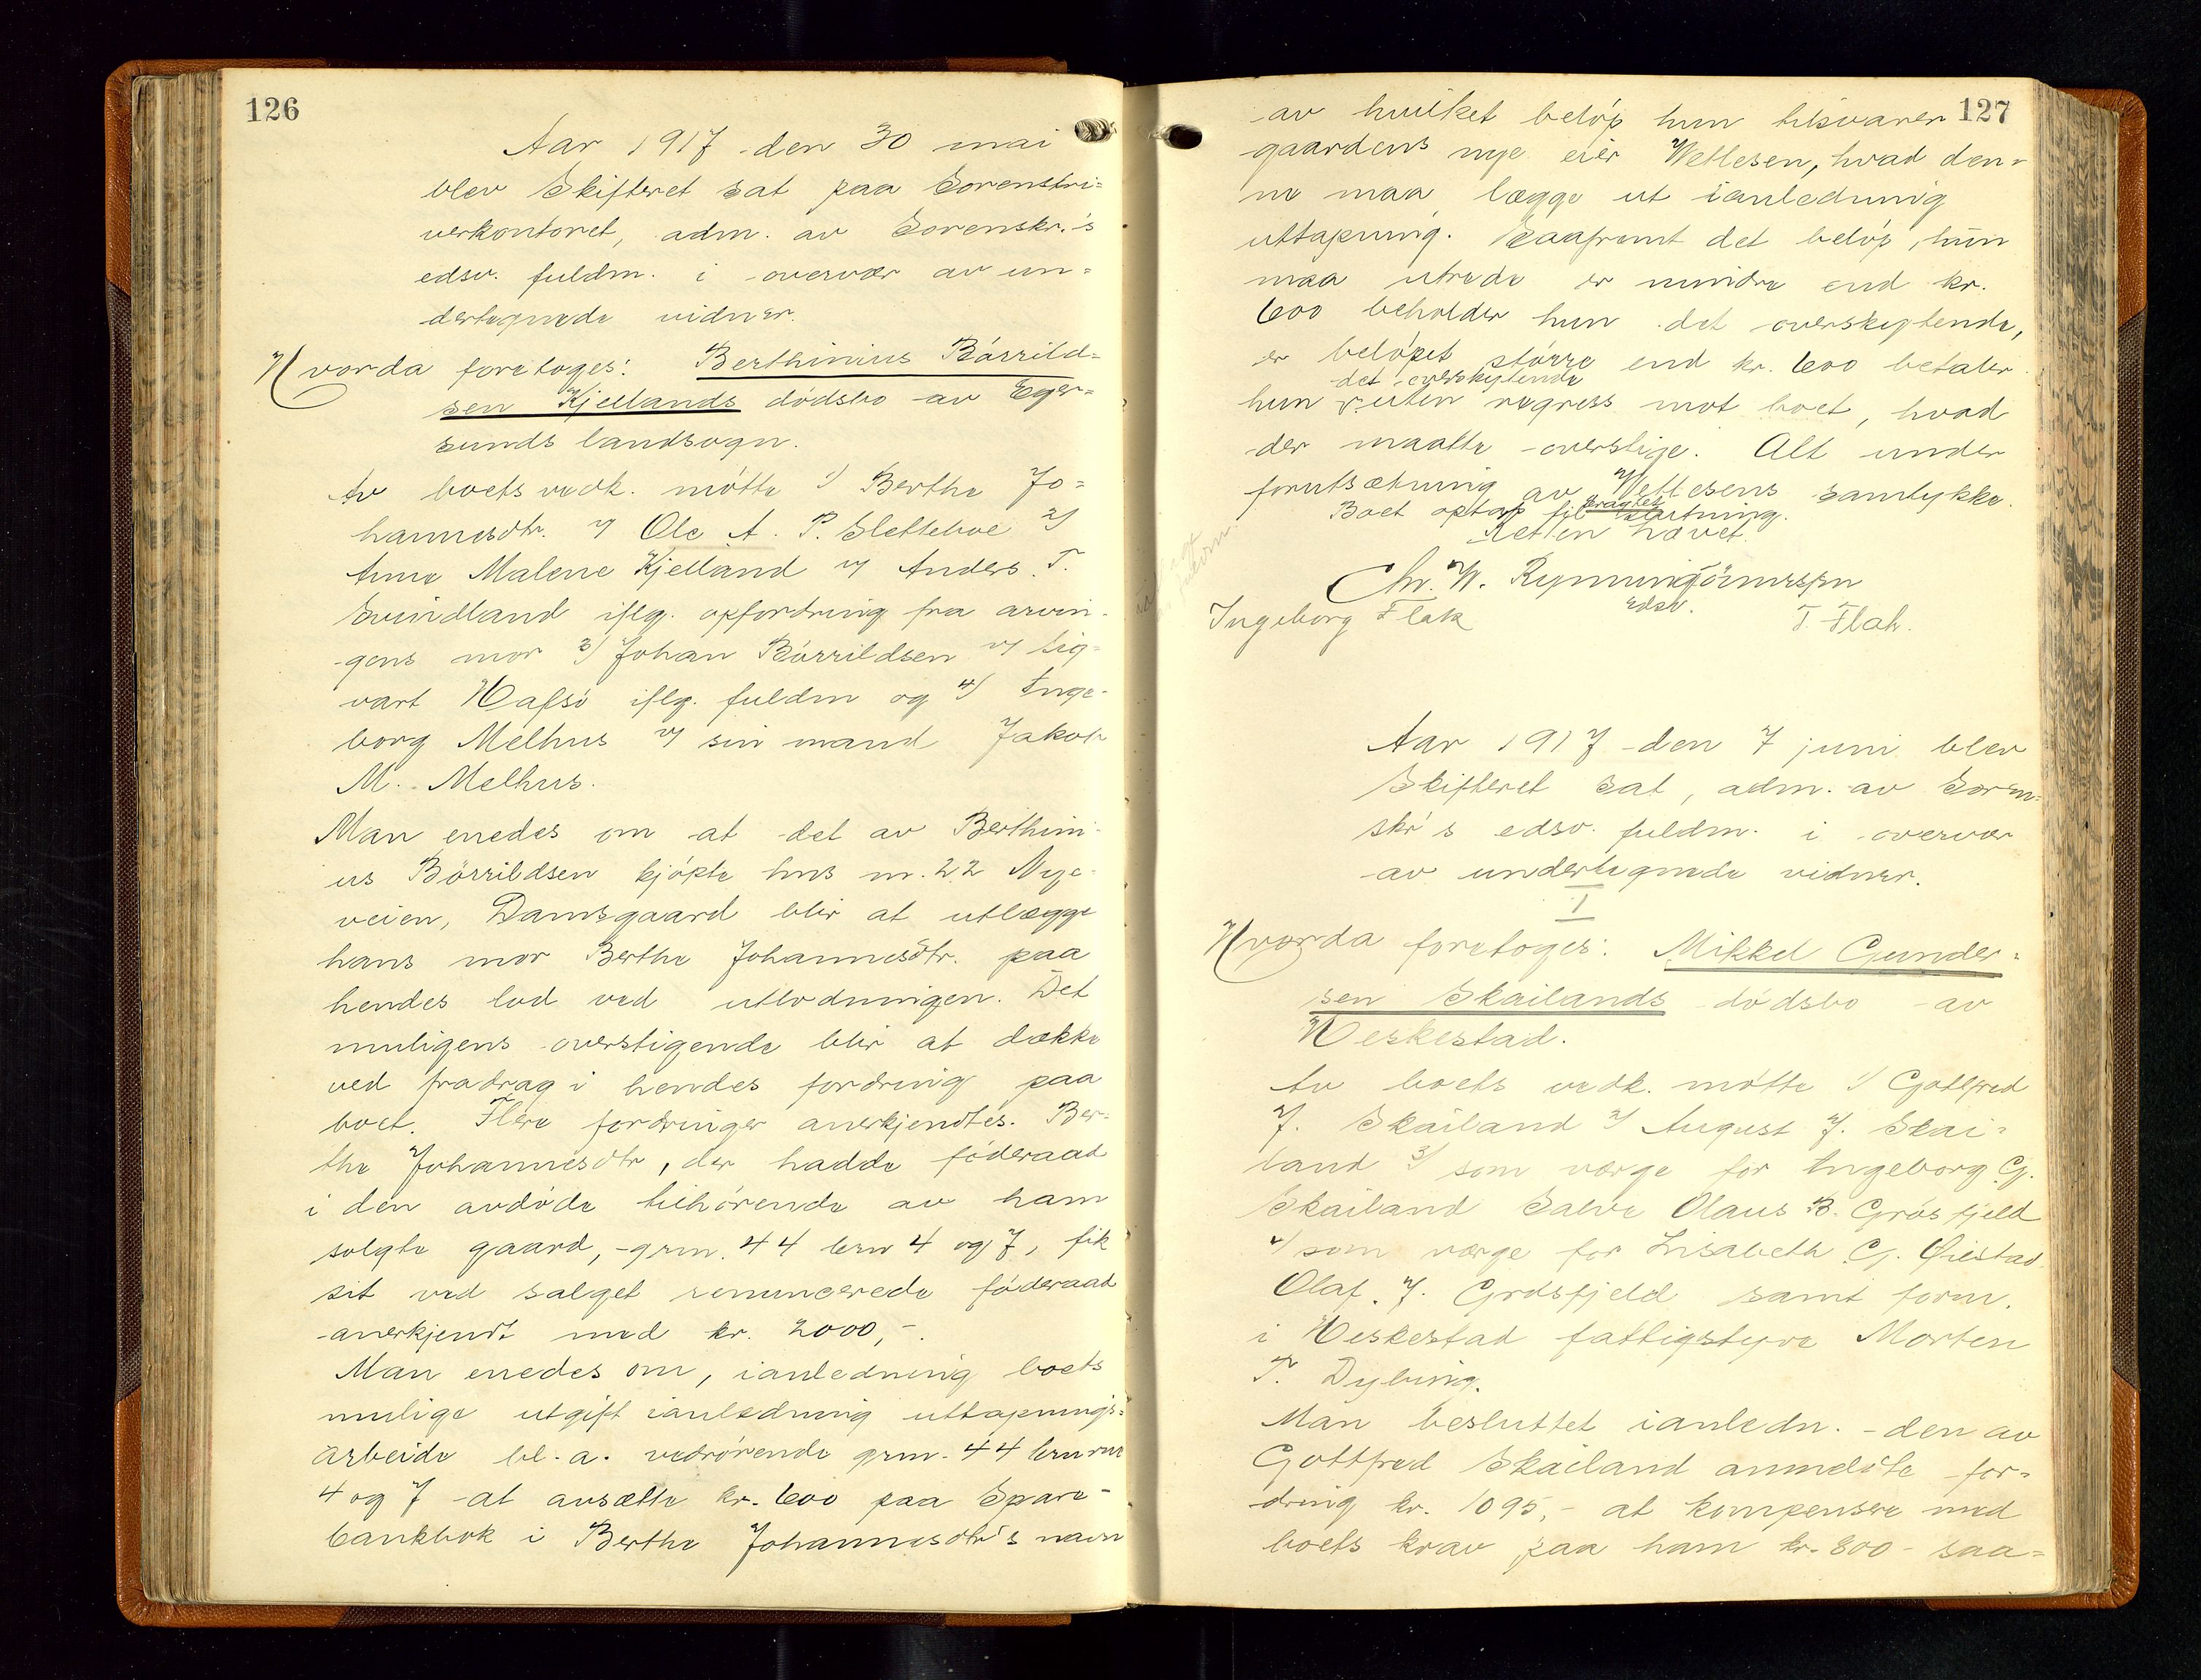 126
Aar 1917 den 30 mai
blev Skifteret sat paa Sorenskri=
verkontoret, adm. av Sorenskr.'s
edsv. fuldm. i overvær av un=
dertegnede vidner.
Hvorda foretoges: Berthinius Börrild=
sen Kjellands dödsbo av Eger=
sunds landsogn.
Av boets vedk. mötte 1) Berthe Jo=
hannesdtr. v/ Ole A. P. Sletteboe 2)
Anne Malene Kjelland v/ Anders T.
Svindland iflg. opfordring fra arvin-
gens mor 3) Johan Börrildsen v/ Sig=
vart Hafsö iflg. fuldm og 4) Inge-
borg Melhus v/ sin mand Jakob
M. Melhus.
Man enedes om at det av Berthini-
us Börrildsen kjöpte hus nr. 22 Nye-
veien, Damsgaard blir at utlægge
hans mor Berthe Johannesdtr. paa
hendes lod ved utlodningen. Det
muligens overstigende blir at dække
ved fradrag i hendes fordring paa
boet. Flere fordringer anerkjendtes. Ber=
the Johannesdtr, der hadde föderaad
i den avdöde tilhörende av ham
solgte gaard, grm. 44 brm 4 og 7, fik
sit ved salget renuncerede föderaad
anerkjendt med kr. 2000,-.
Man enedes om, ianledning boets
mulige utgift ianledning uttapnings=
arbeide bl. a. vedrörende grm. 44 brnrm
4 og 7 at avsætte kr. 600 paa Spare-
bankbok i Berthe Johannesdtr's navn
127
av hvilket belöp hun tilsvarer
gaardens nye eier Wetlesen, hvad den=
ne maa lægge ut ianledning
uttapning. Saafremt det belöp, hun
maa utrede er mindre end kr.
600 beholder hun det overskytende,
er belöpet större end kr. 600 betaler
det overskytende
hun uten regress mot boet, hvad
der maatte overstige. Alt under
forutsætning av Wetlesens samtykke.
Boet optap til slutning.
Retten hævet.
Chr. W. Rynning Tönnesen
edsv.
Ingeborg Flak
T. Flak.
Aar 1917 den 7 juni blev
Skifteret sat, adm. av Soren=
skr's edsv. fuldm. i overvær
av undertegnede vidner.
I
Hvorda foretoges: Mikkel Gunder=
sen Skailands dödsbo av
Heskestad.
Av boets vedk. mötte 1) Gottfred
J. Skailand 2) August J. Skai=
land 3) som værge for Ingeborg G.
Skailand Salve Olaus B. Grösfjeld
4) som værge for Lisabeth G. Øiestad
Olaf J. Grösfjeld samt form.
i Heskestad fattigstyre Morten
T. Dybing.
Man besluttet ianledn. den av
Gottfred Skailand anmeldte for=
dring kr. 1095,- at kompensere med
boets krav paa ham kr. 800- saa=